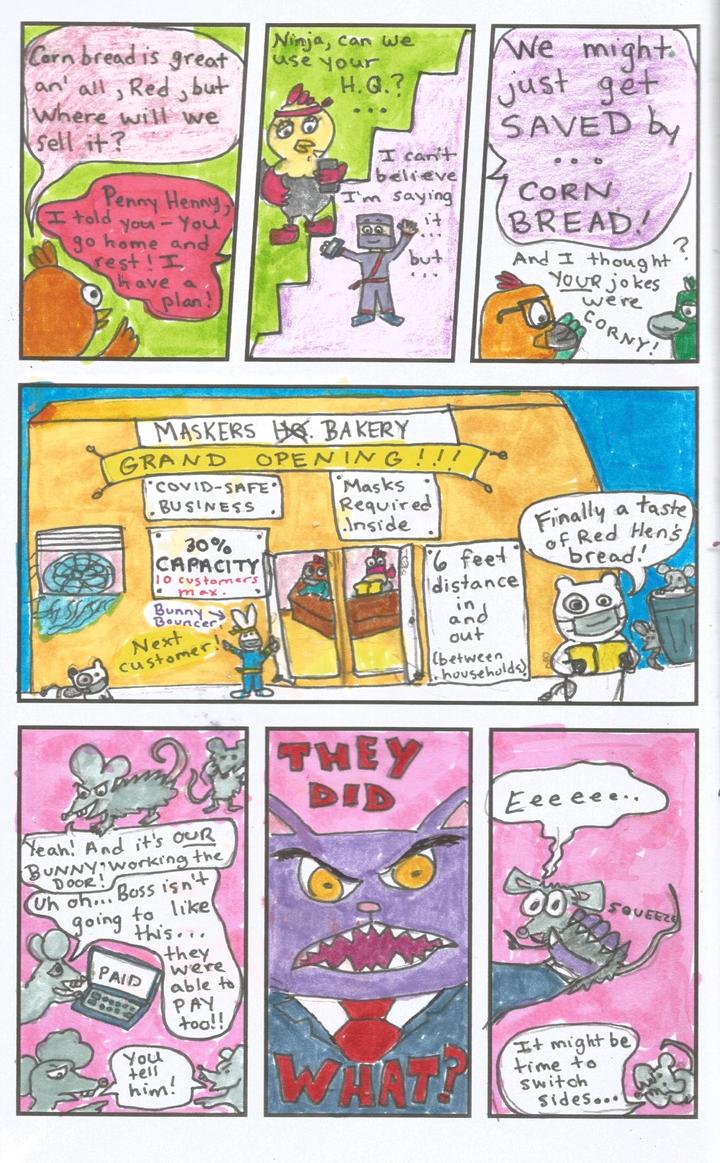 Corn bread is great
an' all, Red, but
where will we
sell it?
Penny Henny,
I told you - you
go home and
rest! I
have a
plan!
Ninja, can we
use your
H.Q.?
...
I can't
believe
I'm saying
it
...
but
...
We might
just get
SAVED by
...
CORN
BREAD!
And I thought
YOUR jokes
were
CORNY!
?
MASKERS HQ. BAKERY
GRAND OPENING!!!
COVID-SAFE
BUSINESS
Masks
Required
Inside
30%
CAPACITY
10 customers
max.
Bunny →
Bouncer
Next
customer!
6 feet
distance
in
and
out
(between
households)
Finally a taste
of Red Hen's
bread!
Yeah! And it's OUR
BUNNY, working the
DOOR!
Uh oh... Boss isn't
going to like
this...
they
were
able to
PAY
too!!
PAID
You
tell
him!
THEY
DID
WHAT?
Eeeeee..
SQUEEZE
It might be
time to
switch
sides...